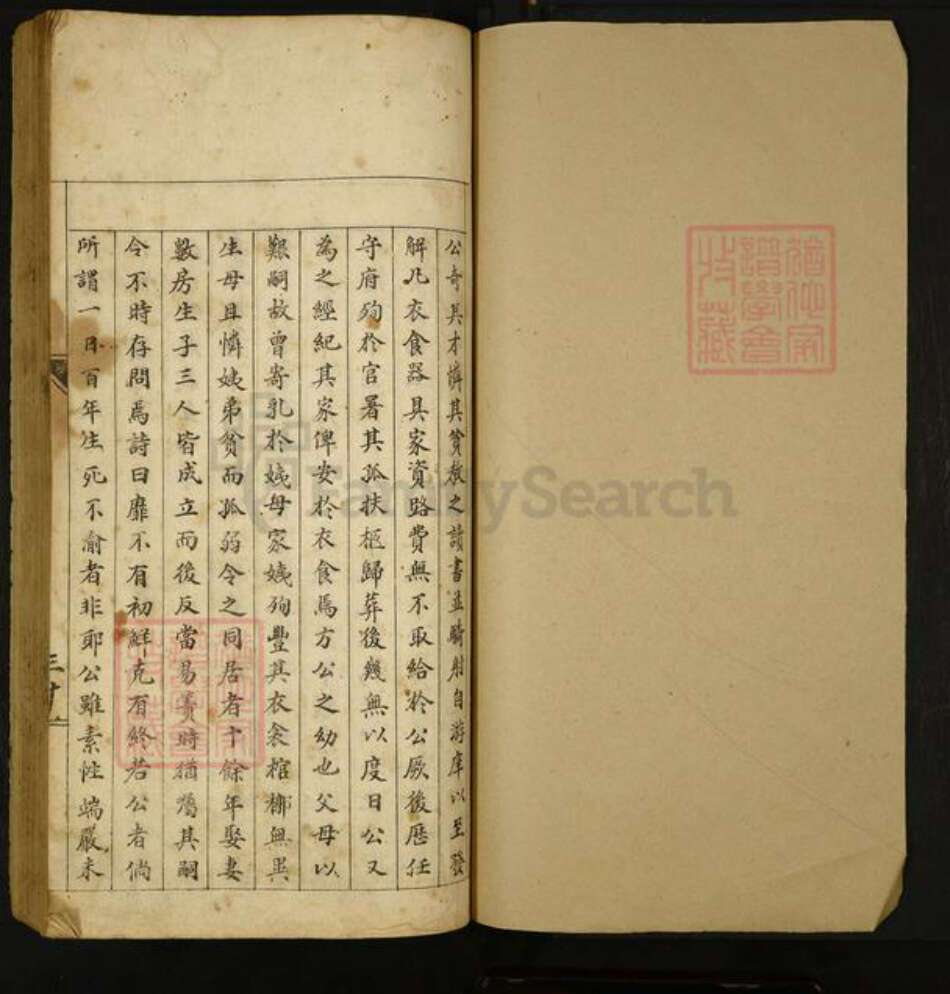 公奇其才憐其貧教之讀書並騎射自游庠以至發
解凡衣食器具家資路費無不取給於公厥後歷任
守府殉於官署其孤扶柩歸葬後幾無以度日公又
為之經紀其家俾安於衣食焉方公之幼也父母以
艱嗣故曾寄乳於姨母家姨殉豐其衣衾棺槨無異
生母且憐姨弟貧而孤弱令之同居者十餘年娶妻
數房生子三人皆成立而後反當易簀時猶囑其嗣
令不時存問焉詩曰靡不有初鮮克有終若公者倘
所謂一日百年生死不渝者非耶公雖素性端嚴未
FamilySearch